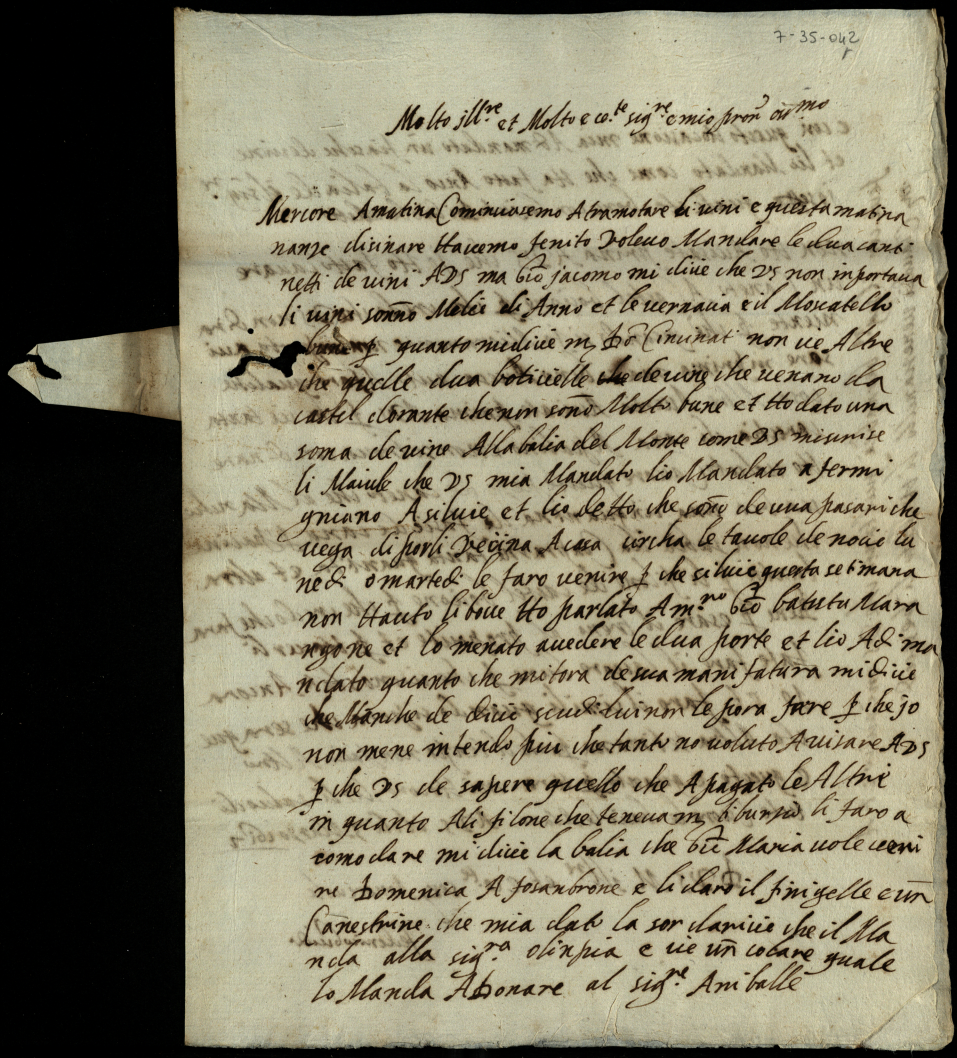 7-35-042
r
Molto Ill.re et Molto ecc.te sig.re e mio pron oss.mo
Mercore Amatina Cominciasemo Atramotare li vini e questa matina
nanze disinare Havemo fenito Volevo Mandare le dua canti
netti de vini AVS ma Gio jacomo mi dicie che VS non inportava
li vini sonno Melci di Anno et le vernacia e il Moscatello
bune p quanto midicie m Cincinat non ve Altre
che quelle dua boticielle che de vine che venano da
castel dorante che non sono Molto bune et Ho dato una
soma de vine Alla balia del Monte come VS miscrise
li Maiule che VS mia Mandato lio Mandato a fermi
gniano A silvie et lio detto che sono de uua pasari che
vega di porli Vecina Acasa circha le tavole de nocie lu
nedi o martedi le faro venire p che silvie questa setimana
non Hauto li bove Ho parlato A m.ro Gio batista Mara
ngone et lo menato avedere le dua porte et lio Adima
ndato quanto che mitora de sua manifatura midicie
che Manche de dieci scudi lui non le pora fare p che jo
non mene intendo piu che tanto no voluto Avisare AVS
p che VS de sapere quello che Apagato le Altre
in quanto Ali filone che teneva m tiburzio li faro a
comodare mi dicie la balia che Maria vole veni
re Domenica A fosanbrone e li daro il finigelle e un
Canestrine che mia dato la sor claricie che il Ma
nda alla sig.ra Olinpia e vie un cocare quale
lo Manda Adonare al sig.re Aniballe